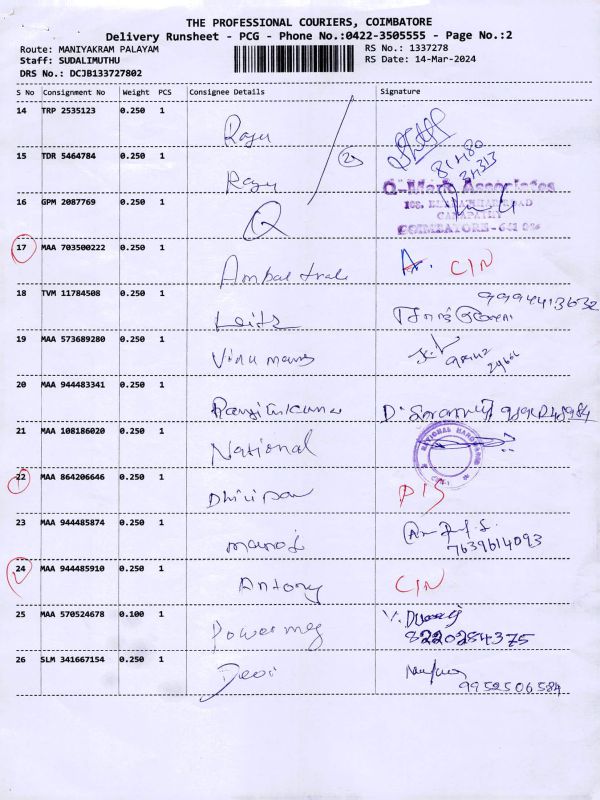 THE PROFESSIONAL COURIERS, COIMBATORE
Delivery Runsheet - PCG - Phone No.:0422-3505555 - Page No.:2
Route: MANIYAKRAM PALAYAM
RS No.: 1337278
Staff: SUDALIMUTHU
RS Date: 14-Mar-2024
DRS No.: DCJB133727802
S No Consignment No Weight PCS Consignee Details Signature
14 TRP 2535123 0.250 1 Raju
15 TDR 5464784 0.250 1 Raju
2
81480
34313
16 GPM 2087769 0.250 1 Q
Q-Mark Associates
COIMBATORE-641
17 MAA 703500222 0.250 1 Ambal trade A. CIN
18 TVM 11784508 0.250 1 Leitz
9994413632
19 MAA 573689280 0.250 1
20 MAA 944483341 0.250 1 Ranjithkumar
21 MAA 108186020 0.250 1 National
22 MAA 864206646 0.250 1 Dhilipan DIS
23 MAA 944485874 0.250 1 Manoj
7639614093
24 MAA 944485910 0.250 1 Antony CIN
25 MAA 570524678 0.100 1 Powermeg
8220284375
26 SLM 341667154 0.250 1 Devi
9952506584